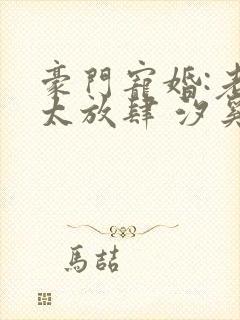 豪門寵婚:老
太放肆 汐奚
馬喆